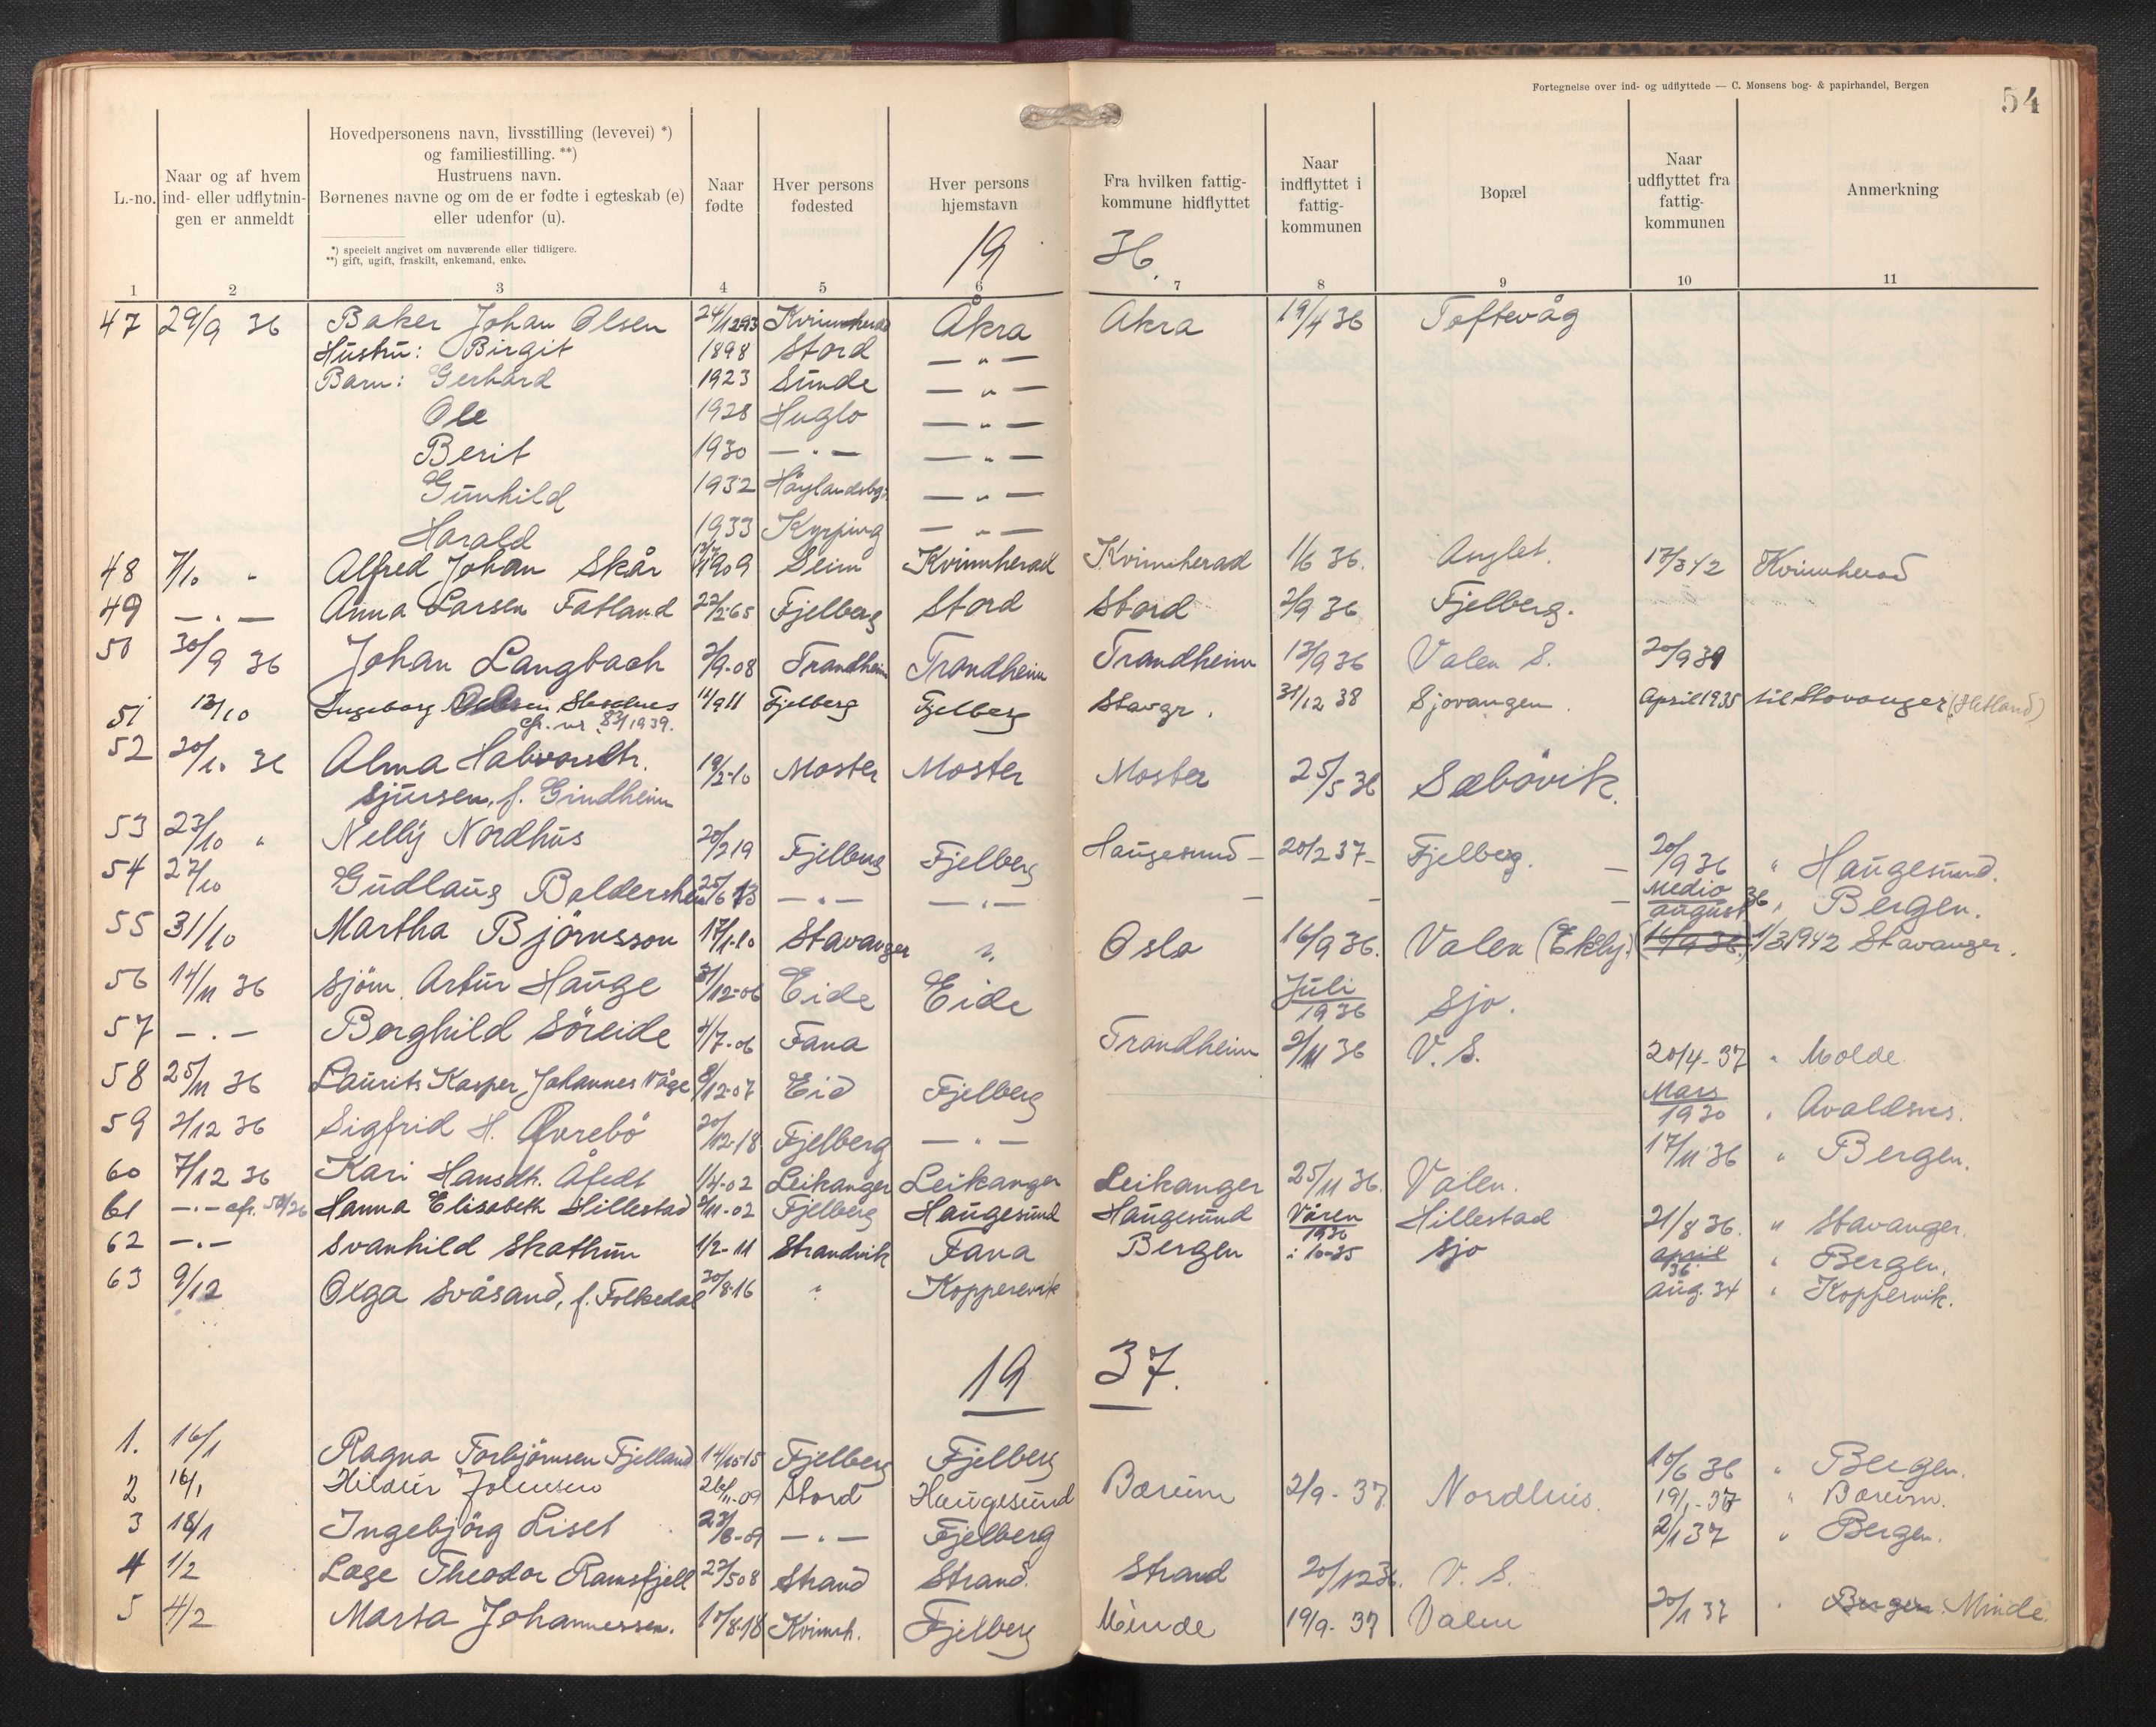 Fortegnelse over ind- og udflyttede — C. Monsens bog- & papirhandel, Bergen
54
L.-no.
Naar og af hvem ind- eller udflytnin-gen er anmeldt
Hovedpersonens navn, livsstilling (levevei) *)
og familiestilling. **)
Hustruens navn.
Børnenes navne og om de er fødte i egteskab (e)
eller udenfor (u).
*) specielt angivet om nuværende eller tidligere.
**) gift, ugift, fraskilt, enkemand, enke.
Naar fødte
Hver persons fødested
Hver persons hjemstavn
Fra hvilken fattig-kommune hidflyttet
Naar indflyttet i fattig-kommunen
Bopæl
Naar udflyttet fra fattig-kommunen
Anmerkning
1 2 3 4 5 6 7 8 9 10 11
19 36.
47 29/9 36 Baker Johan Olsen 24/12 93 Kvinnherad Åkra Akra 19/4 36 Toftevåg
Hustru: Birgit 1898 Stord — " —
Barn: Gerhard 1923 Sunde — " —
Ole 1928 Huglo — " —
Berit 1930 — " — — " —
Gunhild 1932 — " —
Harald 1933 Kyrping — " —
48 7/10 " Alfred Johan Skår 1909 Seim Kvinnherad Kvinnherad 1/6 36. Anglet. 17/3 42 Kvinnherad
49 — " — Anna Larsen Fatland 22/2-65 Fjelberg Stord Stord 2/9 36 Fjelberg.
50 30/9 36 Johan Langbach 2/9-08 Trondheim Trondheim Trondheim 13/9 36 Valen S. 20/9 39
51 13/10 Ingeborg 11/9 11 Fjelberg Fjelberg Stavgr. 31/12 38 Sjovangen. April 1935 til Stavanger (Hetland)
cfr. nr. 83/1939.
52 20/10 36 Alma Halvorsdtr. 19/2-10 Moster Moster Moster 25/5 36 Sæbövik.
Sjursen, f. Grindheim
53 23/10 " Nelly Nordhus 20/2 19 Fjelberg Fjelberg Haugesund — 20/2 37 — Fjelberg. — 20/9 36 " Haugesund.
54 27/10 Gudlaug Baldersheim 25/6 13 — " — — " — — — — Medio august 36 " Bergen.
55 31/10 Martha Björnsson 17/1-10 Stavanger " Oslo 16/9 36. Valen (Ekely) 16/9 36. 1/3 1942 Stavanger.
56 14/11 36 Sjöm. Artur Hauge 31/12-06 Eide Eide Juli 1936 Sjo.
57 — " — Borghild Söreide 4/7-06 Fana Trondheim 2/11 36 V. S. 20/4-37 " Molde.
58 25/11 36 Laurits Kasper Johannes Våge 8/12-07 Eid Fjelberg Mars 1930 " Avaldsnes.
59 2/12 36 Sigfrid H. Øvrebö 20/12-18 Fjelberg — " — 17/11 36 " Bergen.
60 7/12 36 Kari Hansdtr. Åfedt 1/4-02 Leikanger Leikanger Leikanger 25/11 36. Valen.
61 — " — cfr. 50/26 Hanna Elisabeth Hillestad 2/11-02 Fjelberg Haugesund Haugesund Våren 1930 Hillestad 21/8 36. " Stavanger.
62 — " — Svanhild Skathun 1/2-11 Strandvik Fana Bergen i 10-35 Sjo april 36 " Bergen.
63 9/12 Olga Svåsand, f. Folkedal 30/8-16 " Kopperevik aug. 34 " Koppervik.
19 37.
1. 16/1 Ragna Torbjörnsen Fjelland 14/10-15 Fjelberg Fjelberg 10/6 36 " Bergen.
2 16/1 Hildur Johnsen 26/11-09 Stord Haugesund Bærum 2/9-37. Nordhus. 19/1-37 " Bærum.
3 18/1 Ingebjörg Liset 23/8-09 — " — Fjelberg 2/1 37 " Bergen.
4 1/2 Læge Theodor Ramsfjell 27/5 08 Strand Strand. Strand 20/12 36. V. S.
5 4/2 Marta Johannessen. 10/8-18 Kvinnh. Fjelberg Minde 19/9-37 Valen 20/1 37 " Bergen. Minde.